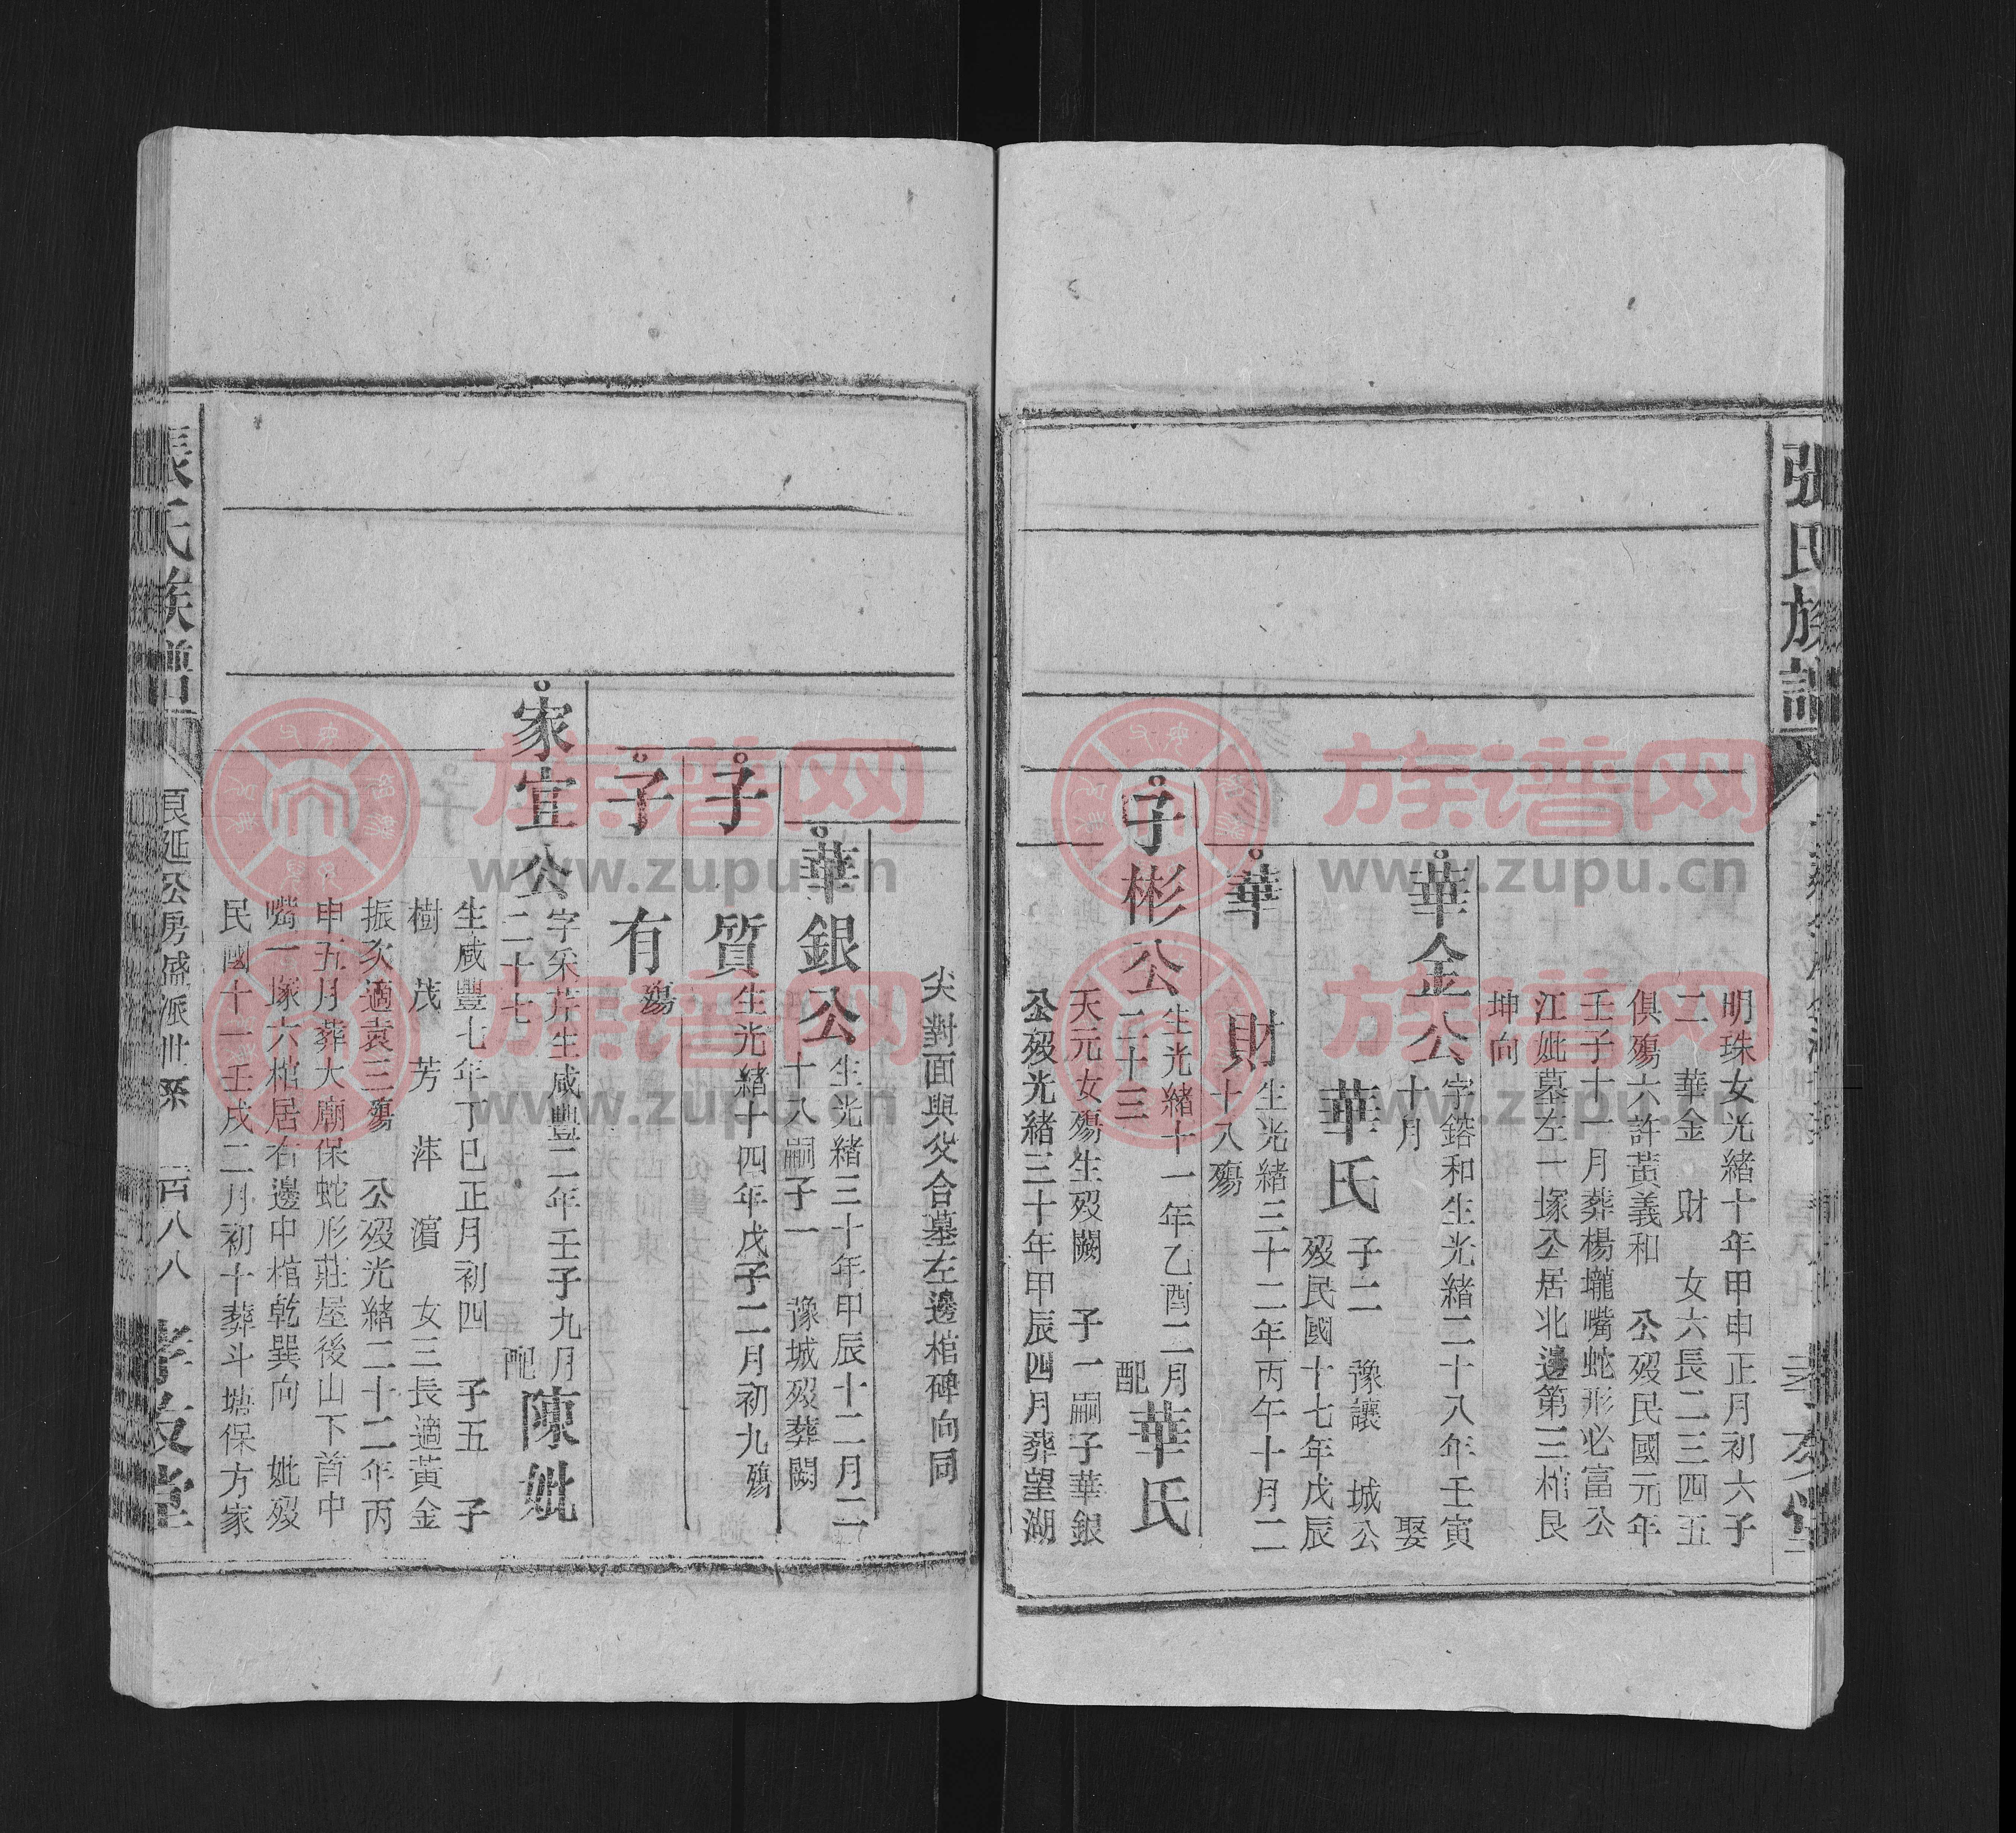 張氏族譜
明珠女光緒十年甲申正月初六子
二　華金　財　女六長二三四五
俱殤六許黃義和　公歿民國元年
壬子十一月葬楊壠嘴蛇形必富公
江妣墓左一塚公居北邊第三棺艮
坤向
華金公字鎔和生光緒二十八年壬寅
十月　娶
華氏子二　豫讓　城公
歿民國十七年戊辰
華財生光緒三十二年丙午十月二
十八殤
子彬公生光緒十一年乙酉二月
二十三　配
華氏
天元女殤生歿闕　子一嗣子華銀
公歿光緒三十年甲辰四月葬望湖
尖對面與父合墓左邊棺碑向同
華銀公生光緒三十年甲辰十二月二
十八嗣子一　豫城歿葬闕
子質生光緒十四年戊子二月初九殤
子有殤
家宜公字采芹生咸豐二年壬子九月
二十七　配
陳妣
生咸豐七年丁巳正月初四　子五　子
樹　茂　芳　萍　濵　女三長適黃金
振次適袁三殤　公歿光緒二十二年丙
申五月葬大廟保蛇形莊屋後山下首中
嘴一塚六棺居右邊中棺乾巽向　妣歿
民國十一壬戌二月初十葬斗塘保方家
張氏族譜
良延公房盛派世系
二百八八
孝友堂
族谱网
www.zupu.cn
族谱网
www.zupu.cn
族谱网
www.zupu.cn
族谱网
www.zupu.cn